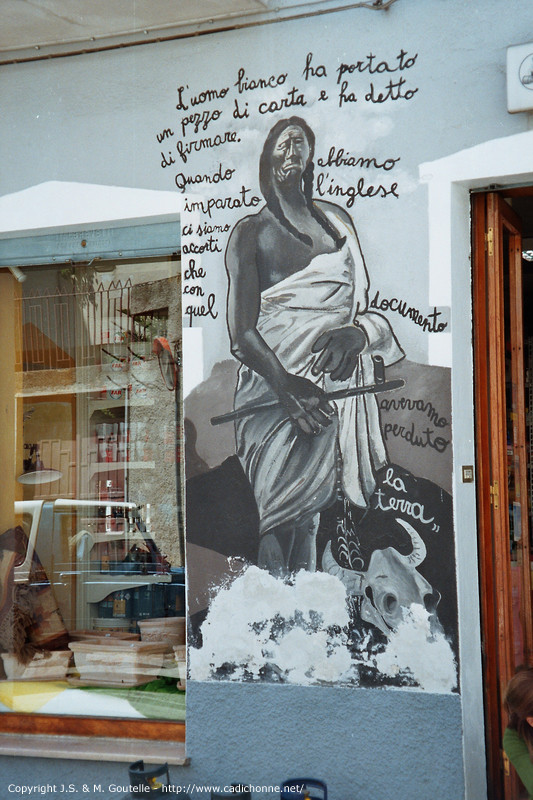 L'uomo bianco ha portato
un pezzo di carta e ha detto
di firmare.
Quando abbiamo
imparato l'inglese
ci siamo
accorti
che
con
quel
documento
avevamo
perduto
la
terra"
Copyright J.S. & M. Goutelle – http://www.cadichonne.net/